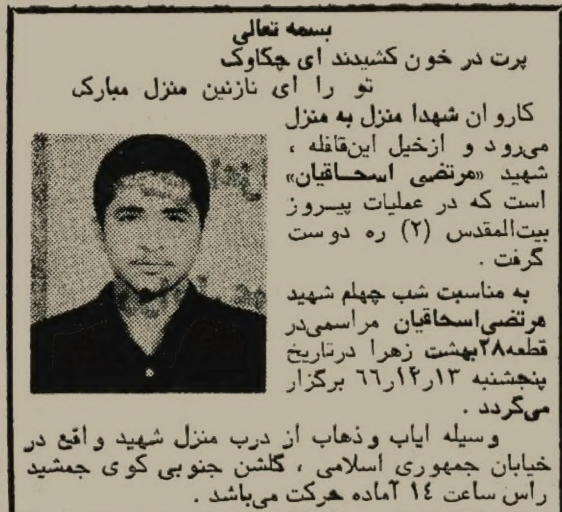 بسمه تعالی
پرت در خون کشیدند ای چکاوک
تو را ای نازنین منزل مبارک
کاروان شهدا منزل به منزل
می‌رود و ازخیل این‌قافله ،
شهید «مرتضی اسحاقیان»
است که در عملیات پیروز
بیت‌المقدس (۲) ره دوست
گرفت .
به مناسبت شب چهلم شهید
مرتضی‌اسحاقیان مراسمی‌در
قطعه۲۸بهشت زهرا درتاریخ
پنجشنبه ۱۳ر۱۲ر۶۶ برگزار
می‌گردد .
وسیله ایاب وذهاب از درب منزل شهید واقع در
خیابان جمهوری اسلامی ، گلشن جنوبی کوی جمشید
راس ساعت ۱٤ آماده حرکت می‌باشد .